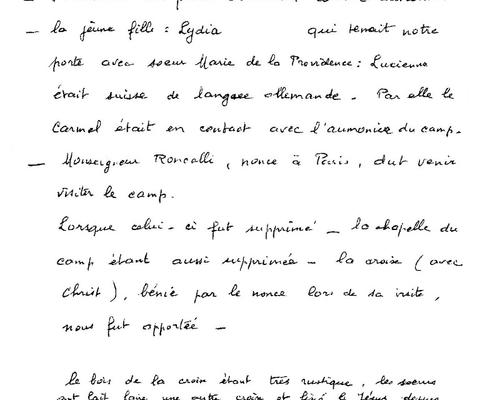 — la jeune fille : Lydia qui tenait notre
porte avec soeur Marie de la Providence : Lucienne
était suisse de langue allemande - Par elle le
Carmel était en contact avec l'aumonier du camp.
— Monseigneur Roncalli, nonce à Paris, dut venir
visiter le camp.
Lorsque celui-ci fut supprimé - la chapelle du
camp étant aussi supprimée - la croix (avec
Christ), bénie par le nonce lors de sa visite,
nous fut apportée -
le bois de la croix étant très rustique, les soeurs
ont fait faire une autre croix et le Jésus